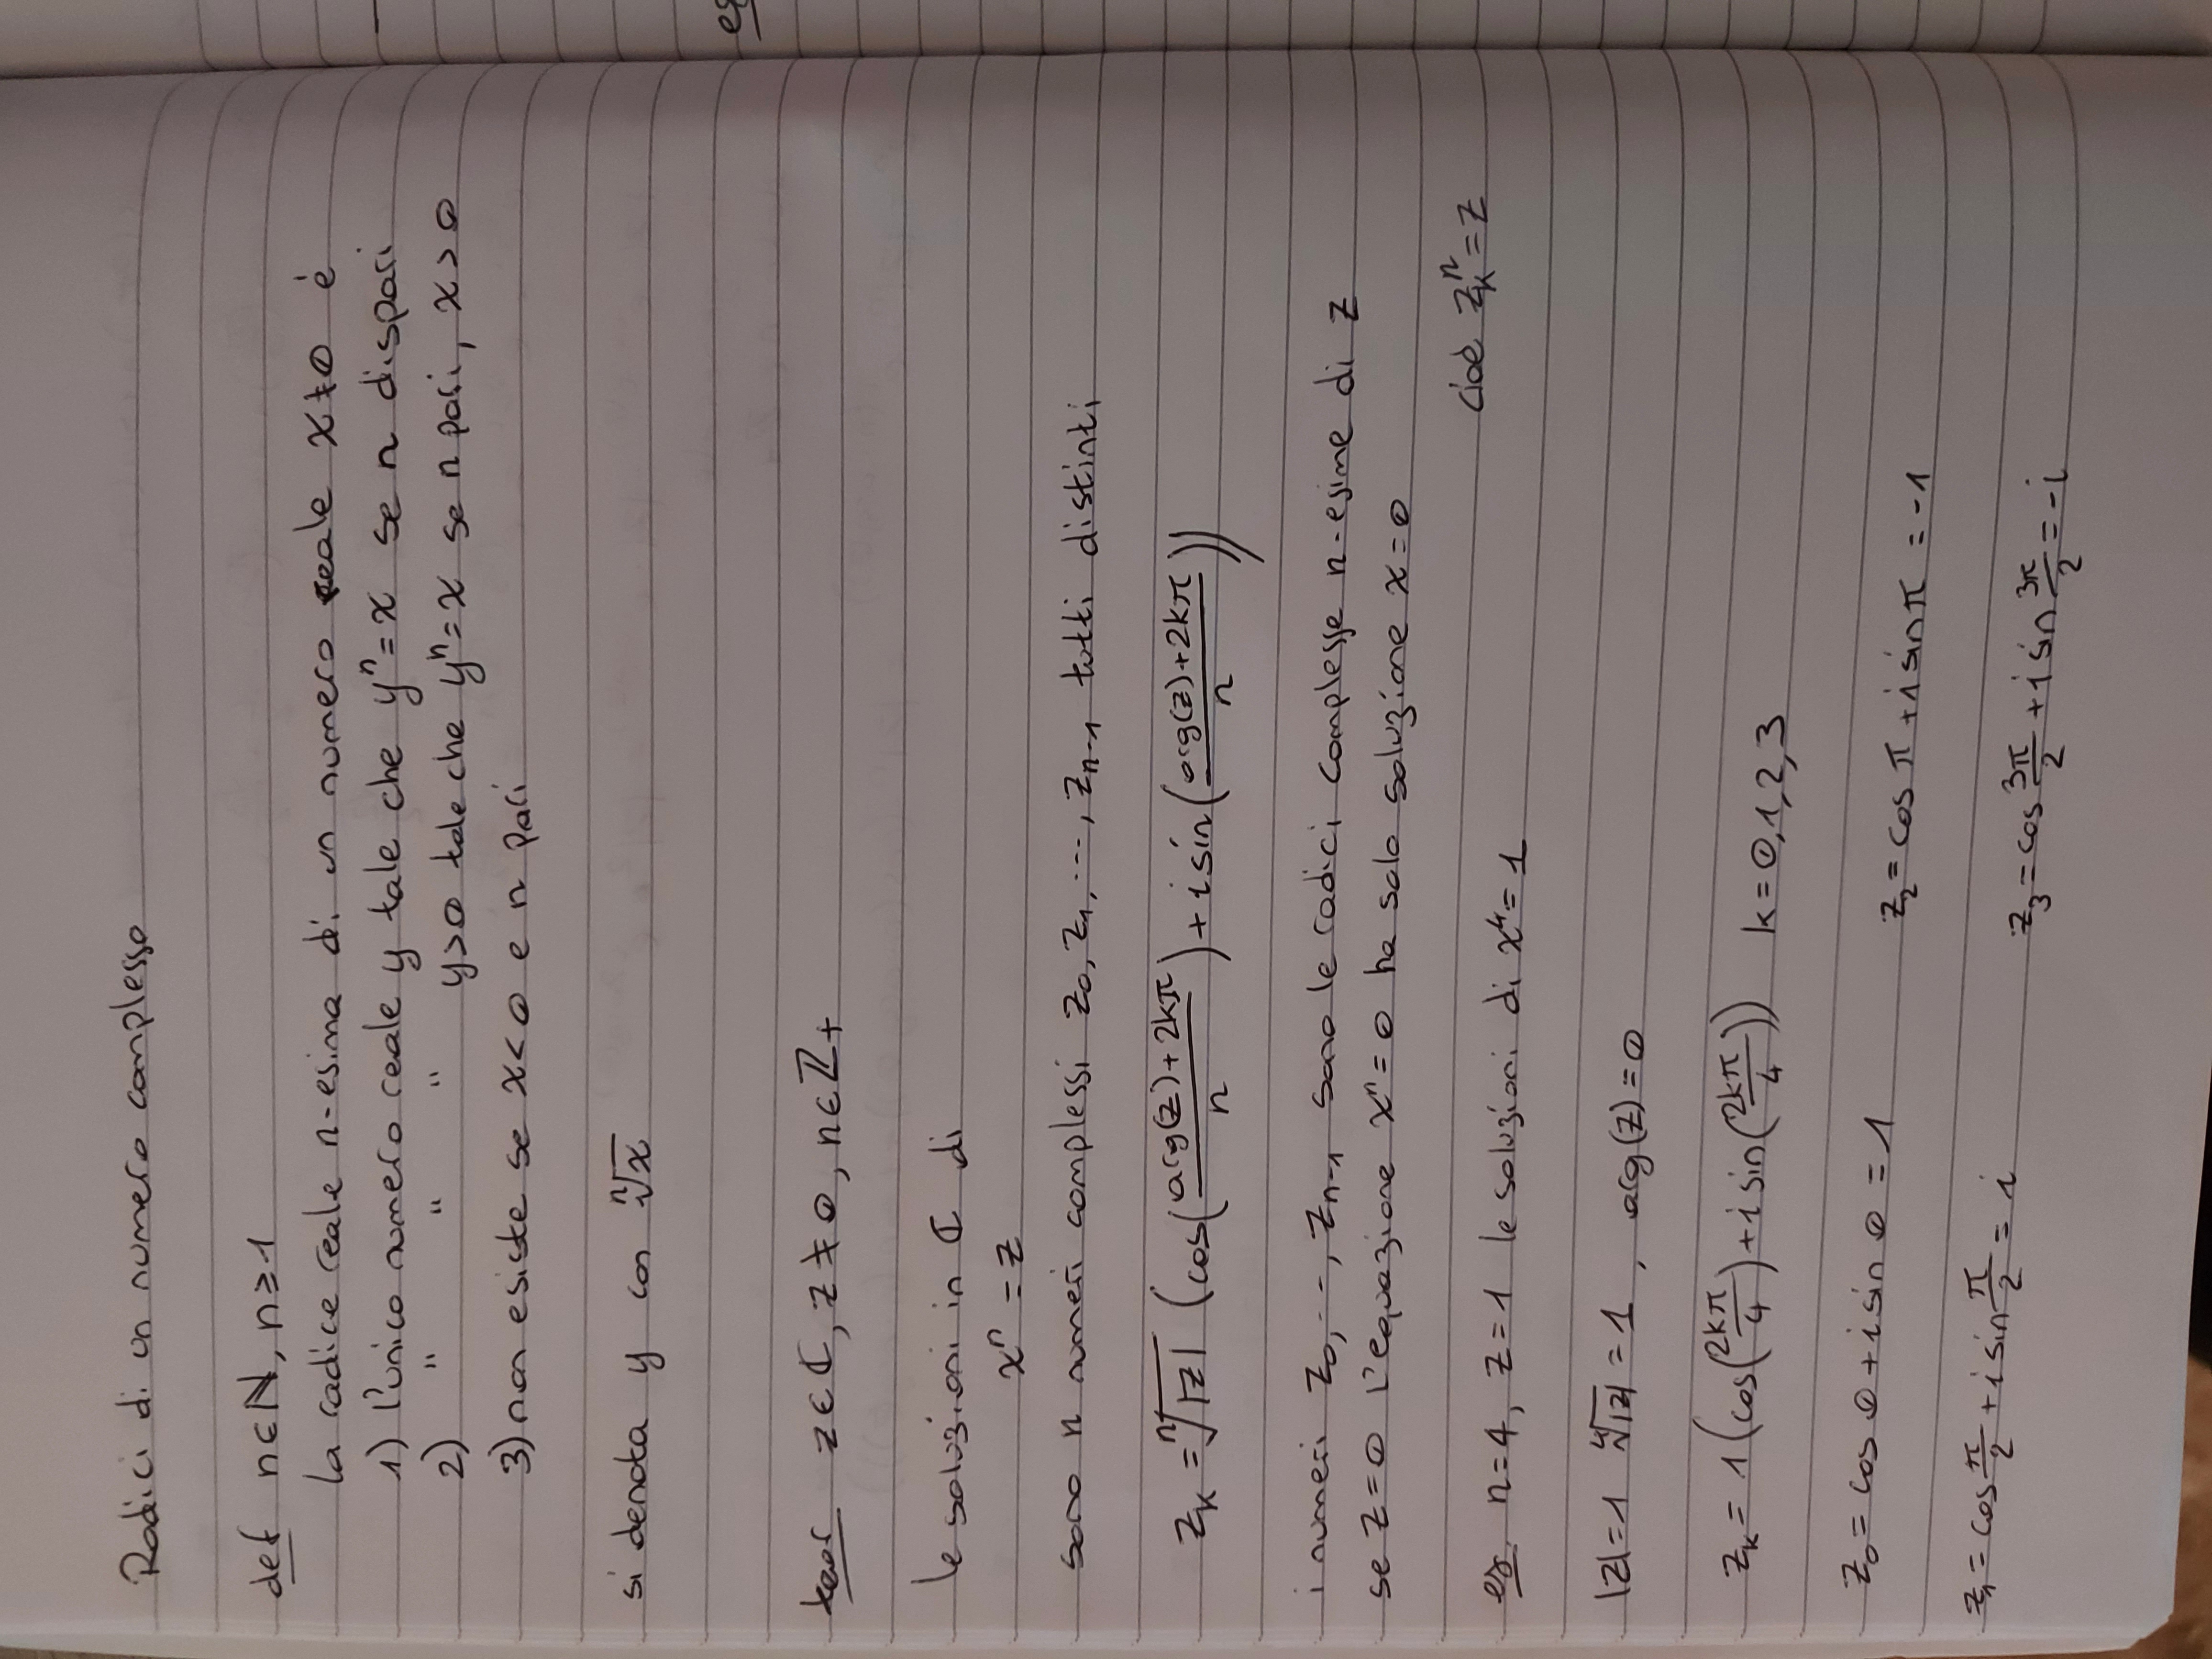 Radici di un numero complesso
def n∈ℕ, n≥1
la radice reale n-esima di un numero reale x≠0 è
1) l'unico numero reale y tale che yⁿ=x se n dispari
2) " " " y>0 tale che yⁿ=x se n pari, x>0
3) non esiste se x<0 e n pari
si denota y con ⁿ√x
teor z∈ℂ, z≠0, n∈ℤ+
le soluzioni in ℂ di
xⁿ = z
sono n numeri complessi z₀, z₁, ..., zₙ₋₁ tutti distinti
zₖ = ⁿ√|z| (cos((arg(z)+2kπ)/n) + i sin((arg(z)+2kπ)/n))
i numeri z₀, ..., zₙ₋₁ sono le radici complesse n-esime di z
se z=0 l'equazione xⁿ=0 ha solo soluzione x=0
cioè zₖⁿ=z
es. n=4, z=1 le soluzioni di x⁴=1
|z|=1 ⁴√|z| = 1, arg(z)=0
zₖ = 1(cos(2kπ/4) + i sin(2kπ/4)) k=0,1,2,3
z₀ = cos 0 + i sin 0 = 1
z₂ = cos π + i sin π = -1
z₁ = cos π/2 + i sin π/2 = i
z₃ = cos 3π/2 + i sin 3π/2 = -i
es